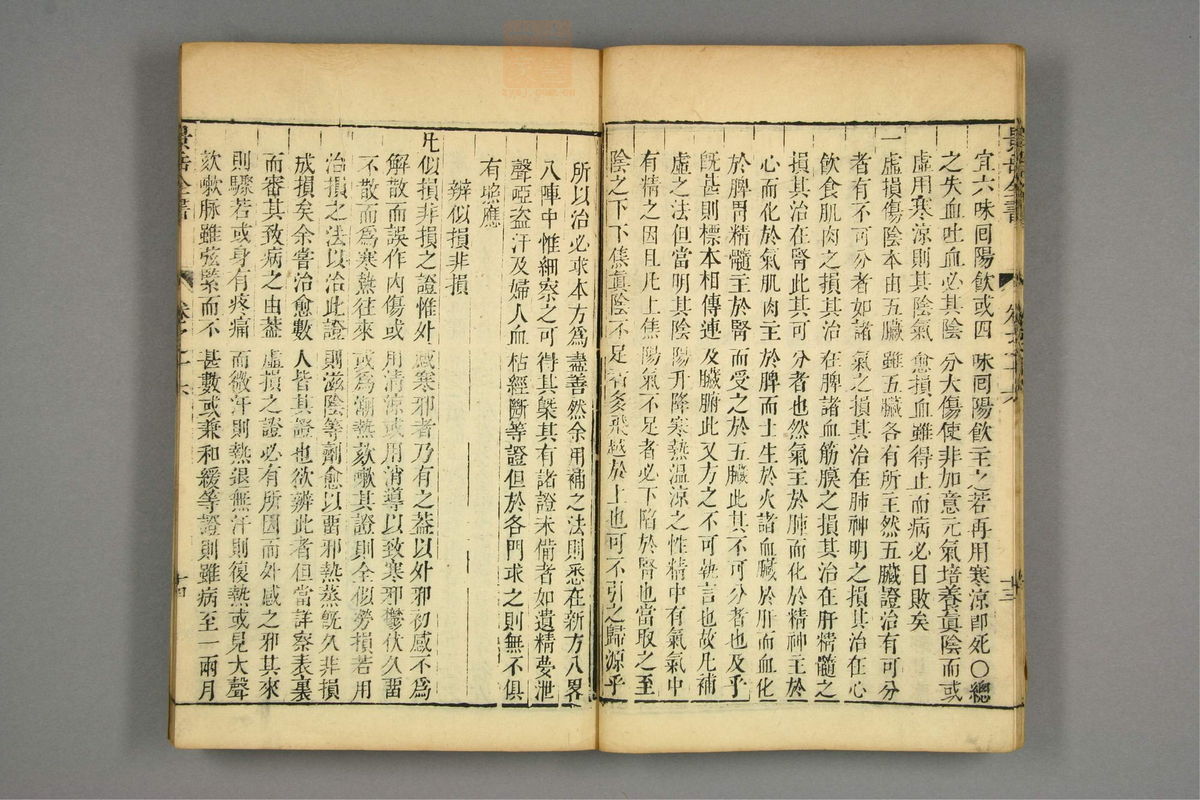 景岳全書
十三
宜六味囘陽飲或四味囘陽飲主之若再用寒涼卽死〇總
之失血吐血必其陰分大傷使非加意元氣培養眞陰而或
虛用寒涼則其陰氣愈損血雖得止而病必日敗矣
一虛損傷陰本由五臟雖五臟各有所主然五臟證治有可分
者有不可分者如諸氣之損其治在肺神明之損其治在心
飮食肌肉之損其治在脾諸血筋膜之損其治在肝精髓之
損其治在腎此其可分者也然氣主於肺而化於精神主於
心而化於氣肌肉主於脾而土生於火諸血臟於肝而血化
於脾胃精髓主於腎而受之於五臟此其不可分者也及乎
旣甚則標本相傳連及臟腑此又方之不可執言也故凡補
虛之法但當明其陰陽升降寒熱溫涼之性精中有氣氣中
有精之因且凡上焦陽氣不足者必下陷於腎也當取之至
陰之下下焦眞陰不足者多飛越於上也可不引之歸源乎
所以治必求本方爲盡善然余用補之法則悉在新方八畧
八陣中惟細察之可得其槩其有諸證未備者如遺精夢泄
聲啞盜汗及婦人血枯經斷等證但於各門求之則無不俱
有照應
辨似損非損
凡似損非損之證惟外感寒邪者乃有之葢以外邪初感不爲
解散而誤作內傷或用清涼或用消導以致寒邪鬱伏久畱
不散而爲寒熱往來或爲潮熱欬嗽其證則全似勞損若用
治損之法以治此證則滋陰等劑愈以畱邪熱蒸旣久非損
成損矣余嘗治愈數人皆其證也欲辨此者但當詳察表裏
而審其致病之由葢虛損之證必有所因而外感之邪其來
則驟若或身有疼痛而微汗則熱退無汗則復熱或見大聲
欬嗽脉雖弦緊而不甚數或兼和緩等證則雖病至一兩月
景岳全書
卷之十六
十四